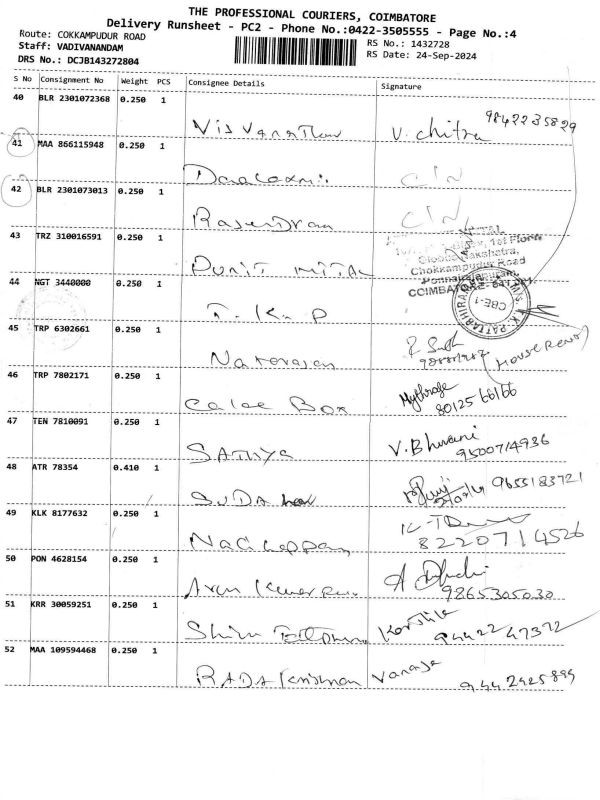 THE PROFESSIONAL COURIERS, COIMBATORE
Delivery Runsheet - PC2 - Phone No.:0422-3505555 - Page No.:4
Route: COKKAMPUDUR ROAD
Staff: VADIVANANDAM
DRS No.: DCJB143272804
RS No.: 1432728
RS Date: 24-Sep-2024
S No Consignment No Weight PCS Consignee Details Signature
40 BLR 2301072368 0.250 1
Visvanathan V. Chitra 9842235829
41 MAA 866115948 0.250 1
C/N
42 BLR 2301073013 0.250 1
Rajendran C/N
43 TRZ 310016591 0.250 1
PUNIT MITTAL
1st Floor
Chokkampudur Road
Ponnaiarajapuram,
44 NGT 3440000 0.250 1
T. K. P
CBE-1
45 TRP 6302661 0.250 1
Natarajan
46 TRP 7802171 0.250 1
Calae Box 8012566166
47 TEN 7810091 0.250 1
SATHYA V. Bhuvani
9500714936
48 ATR 78354 0.410 1
SUDA 9655183721
49 KLK 8177632 0.250 1
Nachiappan 8220714526
50 PON 4628154 0.250 1
Arun Kumar 9865305030
51 KRR 30059251 0.250 1
Karthika
94422 47372
52 MAA 109594468 0.250 1
RADA Krishnan Vanaja
9442925899